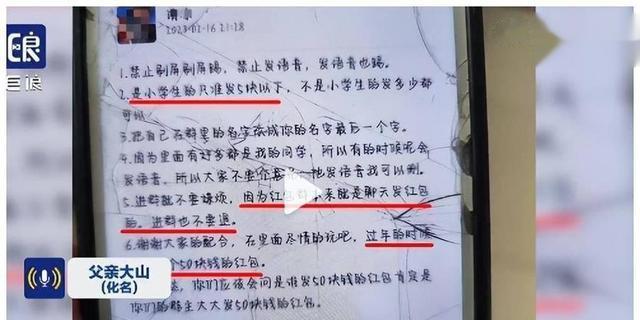 清小
2023-01-16 21:28
1.禁止刷屏刷屏踢，禁止发语音，发语音也踢。
2.是小学生的只准发5块以下，不是小学生的发多少都
可以
3.把自己在群里的名字改成你的名字最后一个字。
4.因为里面有好多都是我的同学，所以有的时候呢会
发语音，所以大家不要介意 他发语音我可以删。
5.进群就不要嫌烦，因为红包群本来就是聊天发红包
的。进群也不要退。
6.谢谢大家的配合，在里面尽情的玩吧，过年的时候
个50块钱的红包。
你们应该会问是谁发50块钱的红包肯定是
你们的群主大大发50块钱的红包。
父亲大山
(化名)